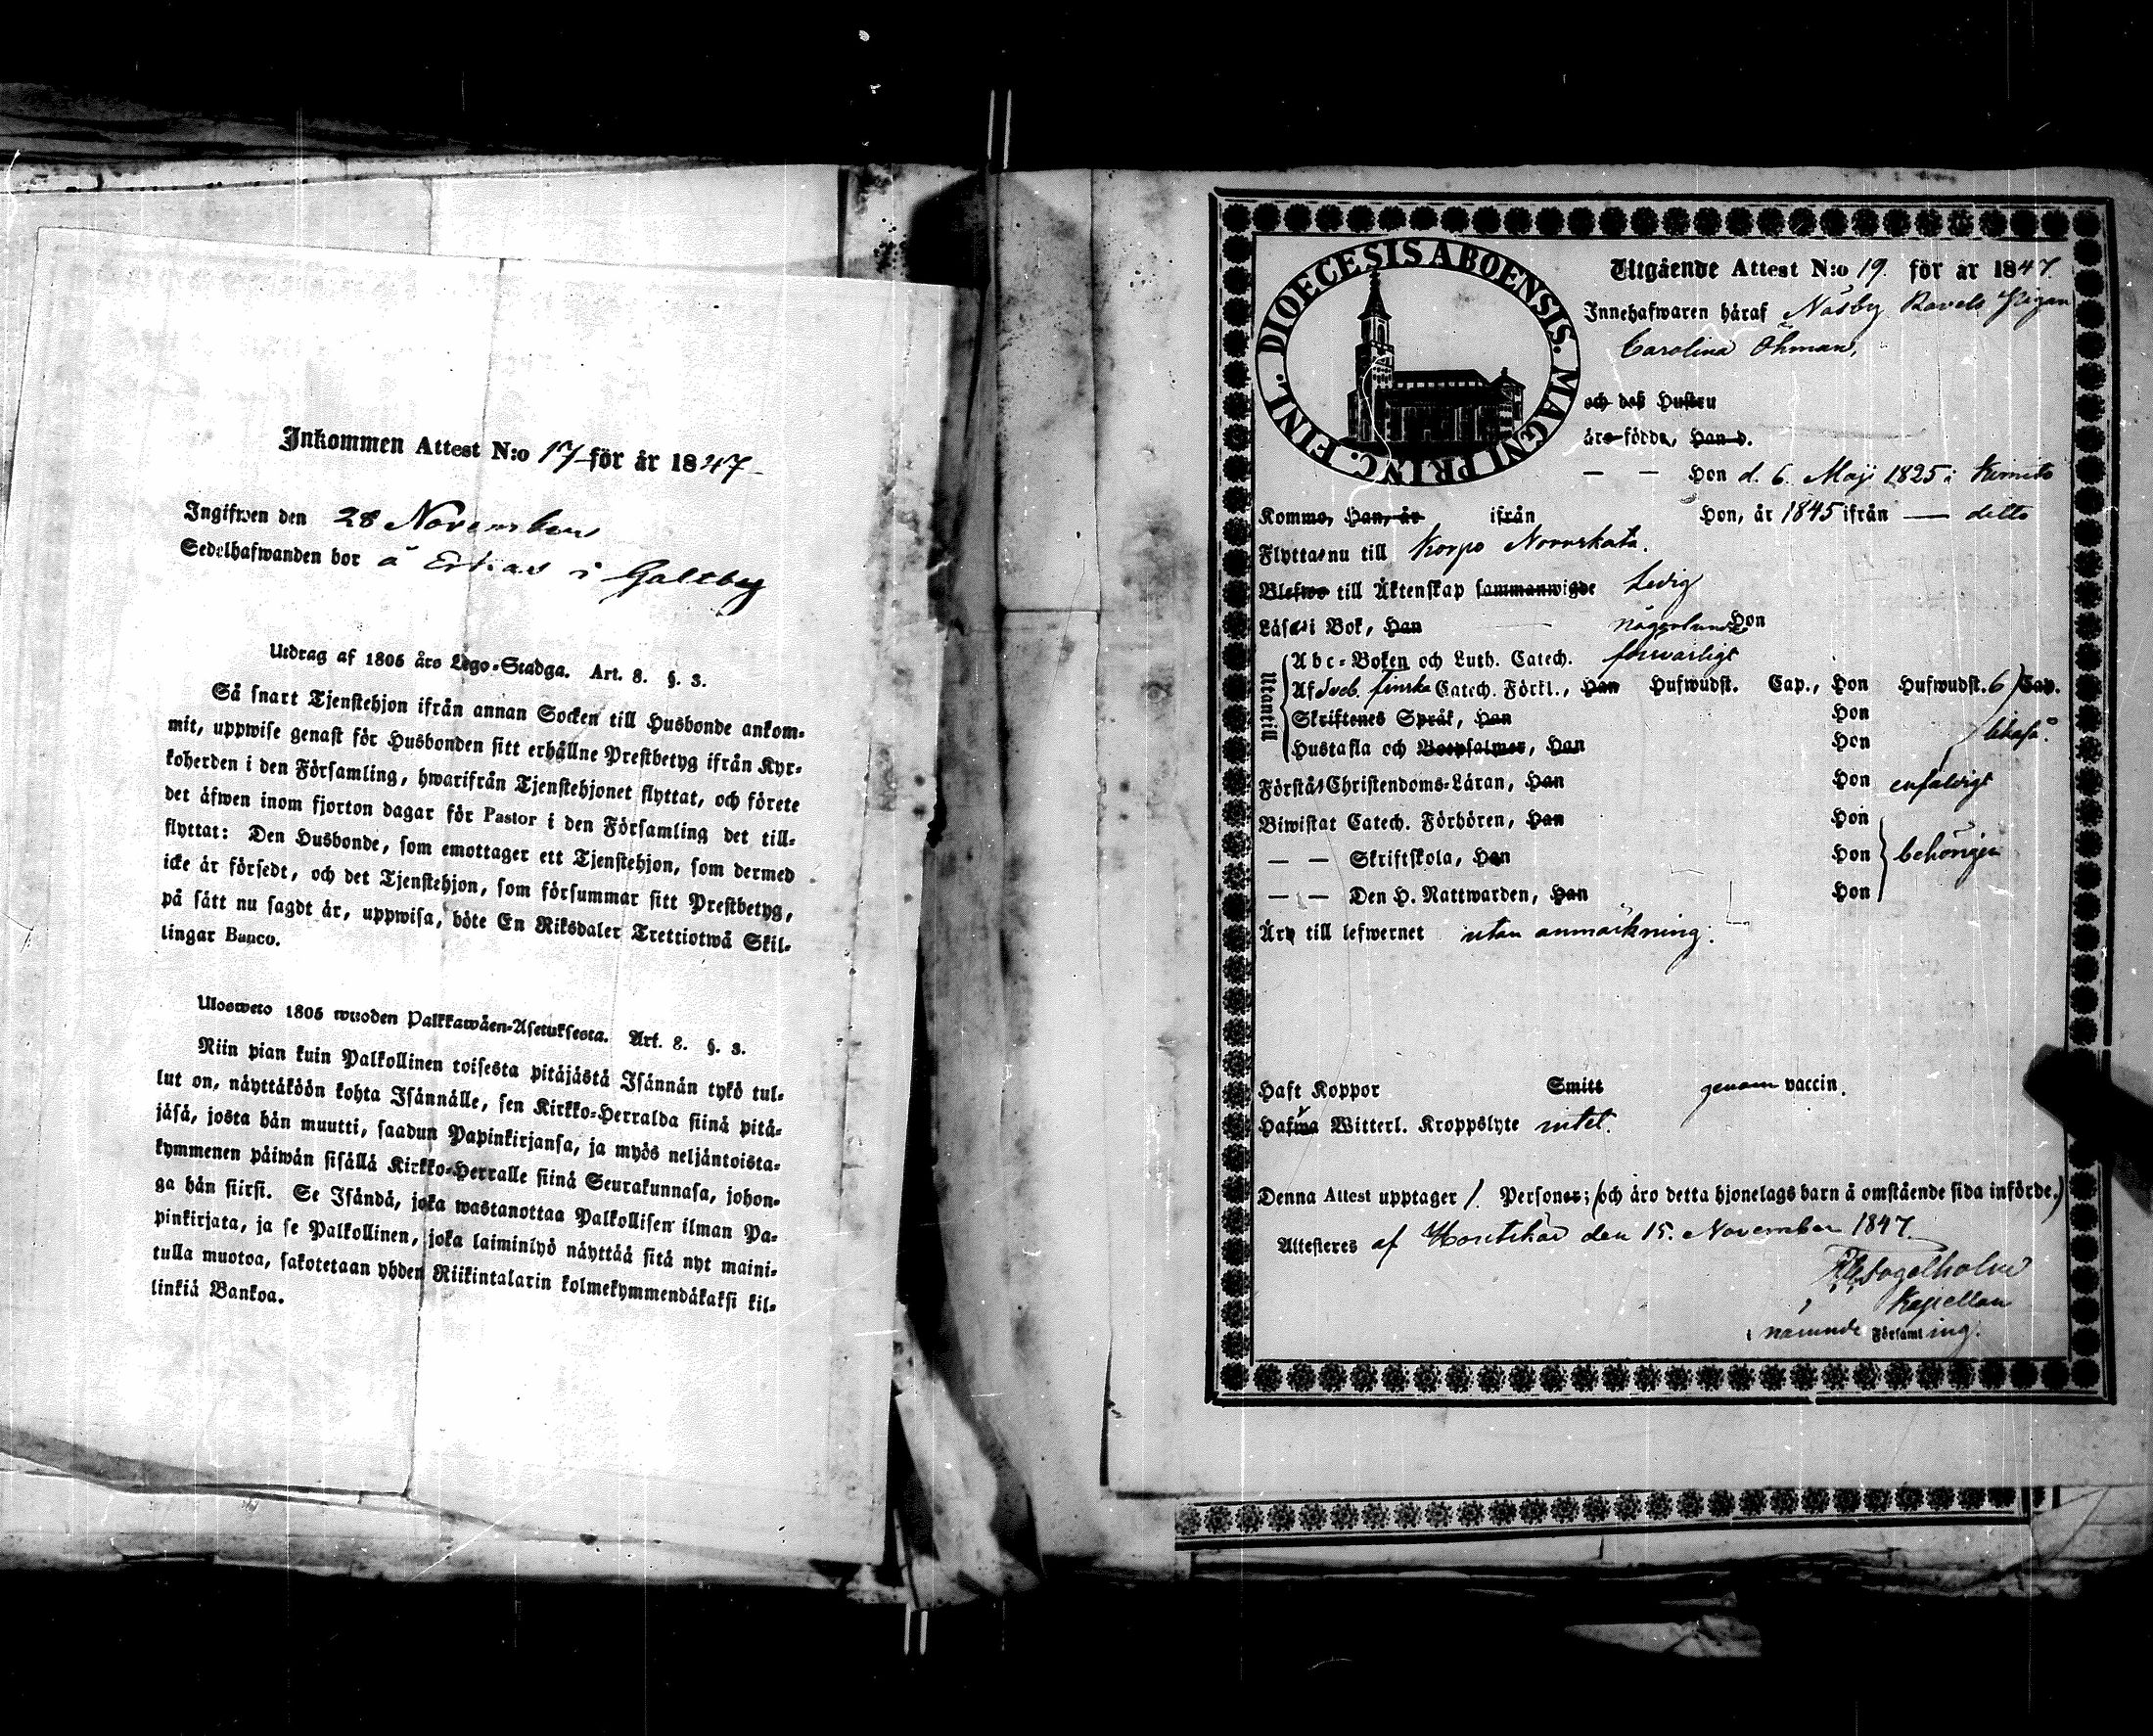 Inkommen Attest N:o 17 för år 1847
Ingifwen den 28 November
Sedelhafwanden bor å Erkas i Galtby
Utdrag af 1805 års Lego-Stadga. Art. 8. §. 3.
Så snart Tjenstehjon ifrån annan Socken till Husbonde ankom-
mit, uppwise genast för Husbonden sitt erhållne Prestbetyg ifrån Kyr-
koherden i den Församling, hwarifrån Tjenstehjonet flyttat, och förete
det äfwen inom fjorton dagar för Pastor i den Församling det till-
flyttat: Den Husbonde, som emottager ett Tjenstehjon, som dermed
icke är försedt, och det Tjenstehjon, som försummar sitt Prestbetyg,
på sätt nu sagdt är, uppwisa, böte En Riksdaler Trettiotwå Skil-
lingar Banco.
Ulosweto 1805 wuoden Palkkawäen-Asetuksesta. Art. 8. §. 3.
Niin pian kuin Palkollinen toisesta pitäjästä Isännän tykö tul-
lut on, näyttäköön kohta Isännälle, sen Kirkko-Herralda siinä pitä-
jäsä, josta hän muutti, saadun Papinkirjansa, ja myös neljäntoista-
kymmenen päiwän sisällä Kirkko-Herralle siinä Seurakunnasa, johon-
ga hän siirsi. Se Isändä, joka wastanottaa Palkollisen ilman Pa-
pinkirjata, ja se Palkollinen, joka laiminlyö näyttää sitä nyt maini-
tulla muotoa, sakotetaan yhden Riikintalarin kolmekymmendäkaksi kil-
linkiä Bankoa.
DIOECESIS ABOENSIS. MAGNI PRINC. FINL.
Utgående Attest N:o 19. för år 1847.
Innehafwaren häraf Näsby Ravels Pigan
Carolina Öhman,
och deß Hustru
äro födde, Han d.
— — Hon d. 6 Maji 1825 i Kimito
Kommo, Han, år ifrån Hon, år 1845 ifrån — ditto
Flytta nu till Korpo Norrskata.
Blefwo till Äktenskap sammanwigde Ledig
Läsa i Bok, Han Hon någorlunda
Utantill
Abc-Boken och Luth. Catech. försvarligt
Af Sveb. finska Catech. Förkl., Han Hufwudst. Cap., Hon Hufwudst. 6 Cap.
Skriftenes Språk, Han Hon
Hustafla och Botpsalmer, Han Hon likaså.
Förstå Christendoms-Läran, Han Hon enfaldigt
Biwistat Catech. Förhören, Han Hon
— — Skriftskola, Han Hon behörigen
— — Den H. Nattwarden, Han Hon
Äro till lefwernet utan anmärkning.
Haft Koppor Smitt genom vaccin.
Hafwa Witterl. Kroppslyte intet.
Denna Attest upptager 1. Personer; (och äro detta hjonelags barn å omstående sida införde.)
Attesteres af Houtskär den 15. November 1847.
Kapellan
i nämnde Församling.